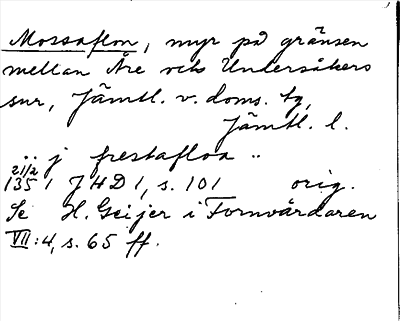 Mossaflon, myr på gränsen
mellan Åre och Undersåkers
snr, Jämtl. v. doms. tg,
Jämtl. l.
.. j frestafloa ..
21/2
1351 JHD 1, s. 101 orig.
Se H. Geijer i Fornvårdaren
VII:4, s. 65 ff.